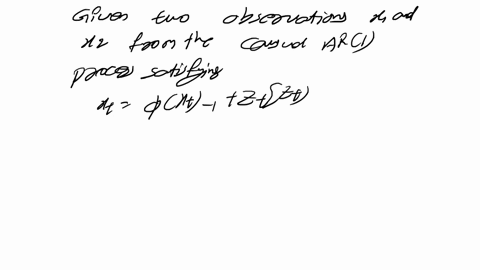 Given two observations x1 and
x2 from the casual AR(1)
process satisfying
xt = φ(Xt)-1 + Zt{Zt}